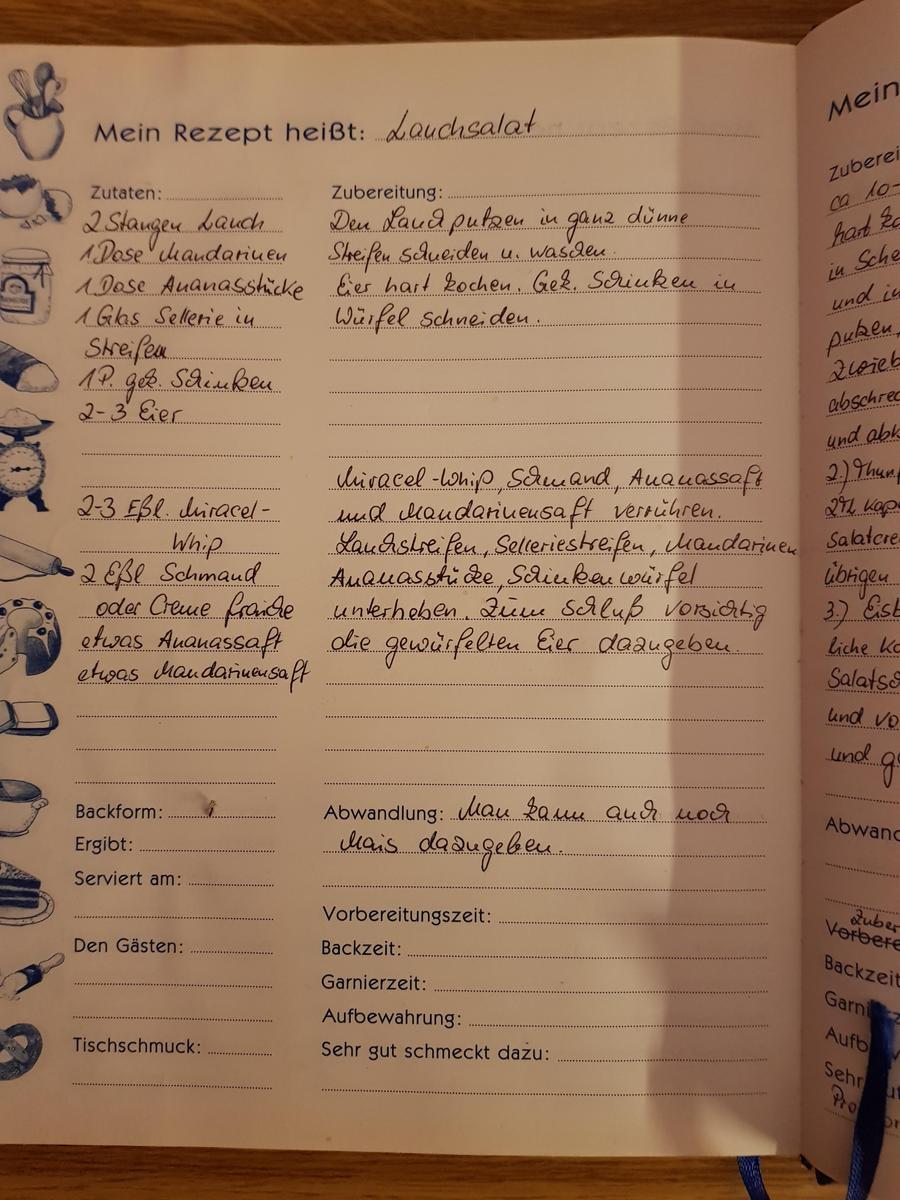 Mein Rezept heißt: Lauchsalat
Zutaten:
2 Stangen Lauch
1 Dose Mandarinen
1 Dose Ananasstücke
1 Glas Sellerie in
Streifen
1 P. gek. Schinken
2-3 Eier
2-3 Eßl. Miracel-
Whip
2 Eßl Schmand
oder Creme fraiche
etwas Ananassaft
etwas Mandarinensaft
Zubereitung:
Den Lauch putzen in ganz dünne
Streifen schneiden u. waschen.
Eier hart kochen. Gek. Schinken in
Würfel schneiden.
Miracel-Whip, Schmand, Ananassaft
und Mandarinensaft verrühren.
Lauchstreifen, Selleriestreifen, Mandarinen
Ananasstücke, Schinkenwürfel
unterheben. Zum Schluß vorsichtig
die gewürfelten Eier dazugeben.
Backform:
Ergibt:
Serviert am:
Den Gästen:
Tischschmuck:
Abwandlung: Man kann auch noch
Mais dazugeben.
Vorbereitungszeit:
Backzeit:
Garnierzeit:
Aufbewahrung:
Sehr gut schmeckt dazu:
Mein
Zuberei
ca 10-
hart ko
in Sche
und in
putzen,
Zwieb
abschrec
und abk
2.) Thunf
2 El. Kap
Salatcre
übrigen
3.) Eisb
liche Ko
Salatsc
und vo
und g
Abwand
Zuber
Vorbere
Backzeit
Garni
Aufb
Sehr